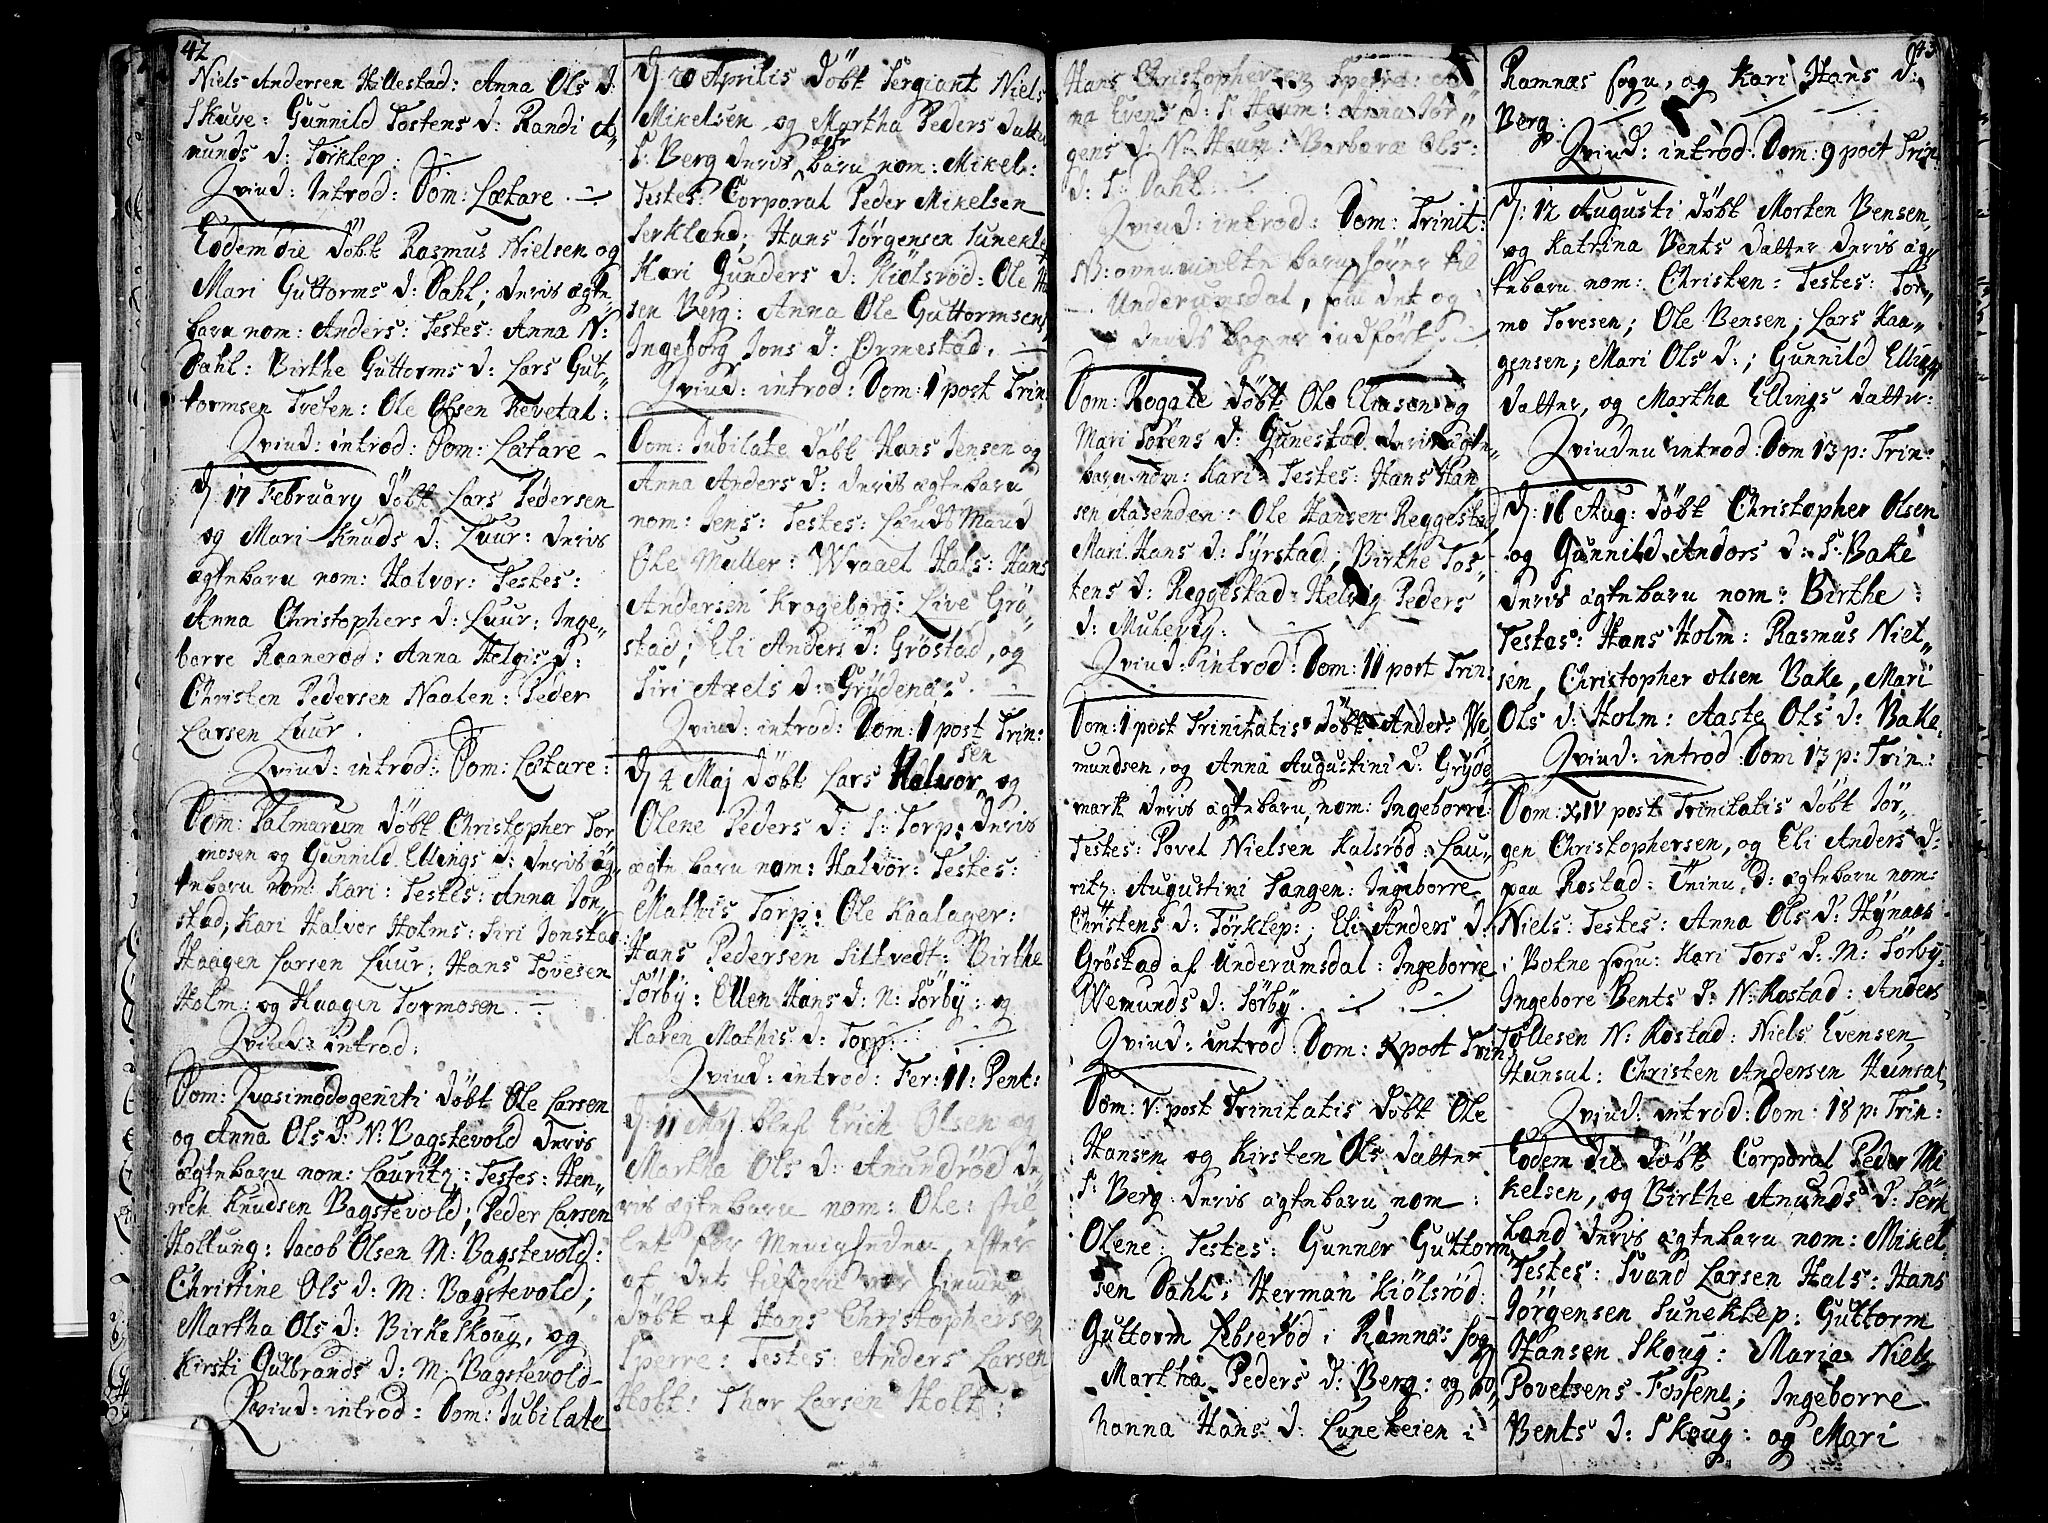 42
Niels Andersen Hillestad: Anna Ols d:
Skuve: Gunnild Tostens d: Randi A„
munds d: Törklep:
Qvind: Introd: Dom: Lætare.
Eodem die döbt Rasmus Nielsen og
Mari Guttorms d: Dahl; deris ægte
barn nom: Anders: Testes: Anna N:
Dahl: Birthe Guttorms d: Lars Gut„
tormsen Tveten: Ole Olsen Revetal:
Qvind: introd: Dom: Lætare
D: 17 February döbt Lars Pedersen
og Mari Knuds d: Luur: deris
ægtebarn nom: Halvor: Testes:
Anna Christophers d: Luur: Inge„
borre Raanerød: Anna Helgis d:
Christen Pedersen Naalen: Peder
Larsen Luur.
Qvind: introd: Dom: Lætare:
Dom: Palmarum döbt Christopher Tor
mosen og Gunnild Ellings d: deris æg„
tebarn nom: Kari: Testes: Anna Jon„
stad; Kari Halvor Holms: Siri Jonstad
Haagen Larsen Luur; Hans Tovesen
Holm: og Haagen Tormosen.
Qvind: introd:
Dom: Qvasimodogeniti döbt Ole Larsen
og Anna Ols d: N: Bagstevold deris
ægtebarn nom: Lauritz: Testes: Hen„
rich Knudsen Bagstevold; Peder Larsen
Holtung: Jacob Olsen M: Bagstevold:
Christine Ols d: M: Bagstevold;
Martha Ols d: Birkeskoug, og
Kirsti Gulbrands d: M: Bagstevold
Qvind: introd: Dom: Jubilate
D: 20 Aprilis döbt Sergiant Niels
Mikelsen og Martha Peders datter
S: Berg deris ægte barn nom: Mikel:
Testes: Corporal Peder Mikelsen
Serkland; Hans Jörgensen Suneklep
Kari Gunders d: Kiölsröd: Ole Han
sen Berg: Anna Ole Guttormsens
Ingeborg Jons d: Ormestad.
Qvind: introd: Dom: 1 post Trin:
Dom: Jubilate döbt Hans Jensen og
Anna Anders d: deris ægtebarn
nom: Jens: Testes: Laudtmand
Ole Muller: Wraael Hals: Hans
Andersen Krageborg: Live Grö„
stad; Eli Anders d: Gröstad, og
Siri Axels d: Grydenas.
Qvind: introd: Dom: 1 post Trin:
D 4 Maj döbt Lars Halvorsen og
Olene Peders d: S: Torp: deris
ægte barn nom: Halvor: Testes:
Mathis Torp: Ole Kaalager:
Hans Pedersen Siltvedt: Birthe
Sörby: Ellen Hans d: N: Sörby: og
Karen Mathis d: Torp:
Qvind: introd: Fer: 11: Pent:
D: 11 Maj blef Erich Olsen og
Martha Ols d: Anundröd de„
ris ægtebarn nom: Ole: stil
let for Menigheden, efter
at det tilforn var hiemme
döbt af Hans Christophersen
Sperre: Testes Anders Larsen
Holt: Thor Larsen Holt:
Hans Christophersen Sperre:
na Evens d: S Haum: Anna Jör„
gens d: N: Haum: Barbara Ols:
d: S: Dahl
Qvind: introd: Dom: Trinit:
NB: ovenmelte barn hörer til
Underumsdal,
deris bog er indfört.
Dom: Rogate döbt Ole Eliasen og
Mari Sörens d: Gunestad deris ægte„
barn nom: Kari: Testes: Hans Han
sen Aasenden: Ole Hansen Reggestad
Mari Hans d: Syrstad; Birthe Tos„
tens d: Reggestad: Helvig Peders
d: Mulevig.
Qvind: introd: Dom: 11 post Trin:
Dom: 1 post Trinitatis döbt Anders We„
mundsen, og Anna Augustini d: Gryde
mark deris ægtebarn, nom: Ingeborre:
Testes: Povel Nielsen Kalsröd: Lau„
ritz Augustini Tangen: Ingeborre
Christens d: Törklep:; Eli Anders d:
Gröstad af Underumsdal: Ingeborre
Wemunds d: Sörby.
Qvind: introd: Dom: X post Trin
Dom: V: post Trinitatis döbt Ole
Hansen og Kirsten Ols datter
S: Berg deris ægtebarn nom:
Olene: Testes: Gunner Guttorm
sen Dahl; Herman Kiölsröd
Guttorm Lebseröd i Ramnas sogn
Martha Peders d: Berg: og Jo„
hanna Hans d: Lunekeien i
43
Ramnas sogn, og Kari Hans d:
Berg:
Qvind: introd: Dom: 9 post Trin:
D: 12 Augusti döbt Morten Bensen,
og Katrina Bents datter deris æg„
tebarn nom: Christen: Testes: Tor„
mo Tovesen; Ole Bensen; Lars Haa„
gensen; Mari Ols d:; Gunnild Ellings
datter, og Martha Ellings datter:
Qvinden introd: Dom 13 p: Trin:
D: 16 Aug: döbt Christopher Olsen
og Gunnild Andors d: S: Bake
deris ægtebarn nom: Birthe:
Testes: Hans Holm: Rasmus Niel„
sen, Christopher Olsen Bake, Mari
Ols d: Holm: Aaste Ols d: Bake.
Qvind: introd: Dom 13 p: Trin:
Dom: XIV post Trinitatis döbt Jör„
gen Christophersen, og Eli Anders d:
paa Rostad: d: ægtebarn nom:
Niels: Testes: Anna Ols d: Hynaas
i Botne sogn: Kari Tors d: M: Sörby:
Ingebore Bents d: N: Rostad: Anders
Tollesen N: Rostad: Niels Evensen,
Hunsal: Christen Andersen Hunsal,
Qvind: introd: Dom: 18 p: Trin:
Eodem die döbt Corporal Peder Mi
kelsen, og Birthe Anunds d: Serk
land deris ægtebarn nom: Mikel:
Testes: Svend Larsen Hals: Hans
Jörgensen Suneklep: Guttorm
Hansen Skoug: Maria Niels
Povelsens Fossene; Ingeborre
Bents d: Skoug: og Mari